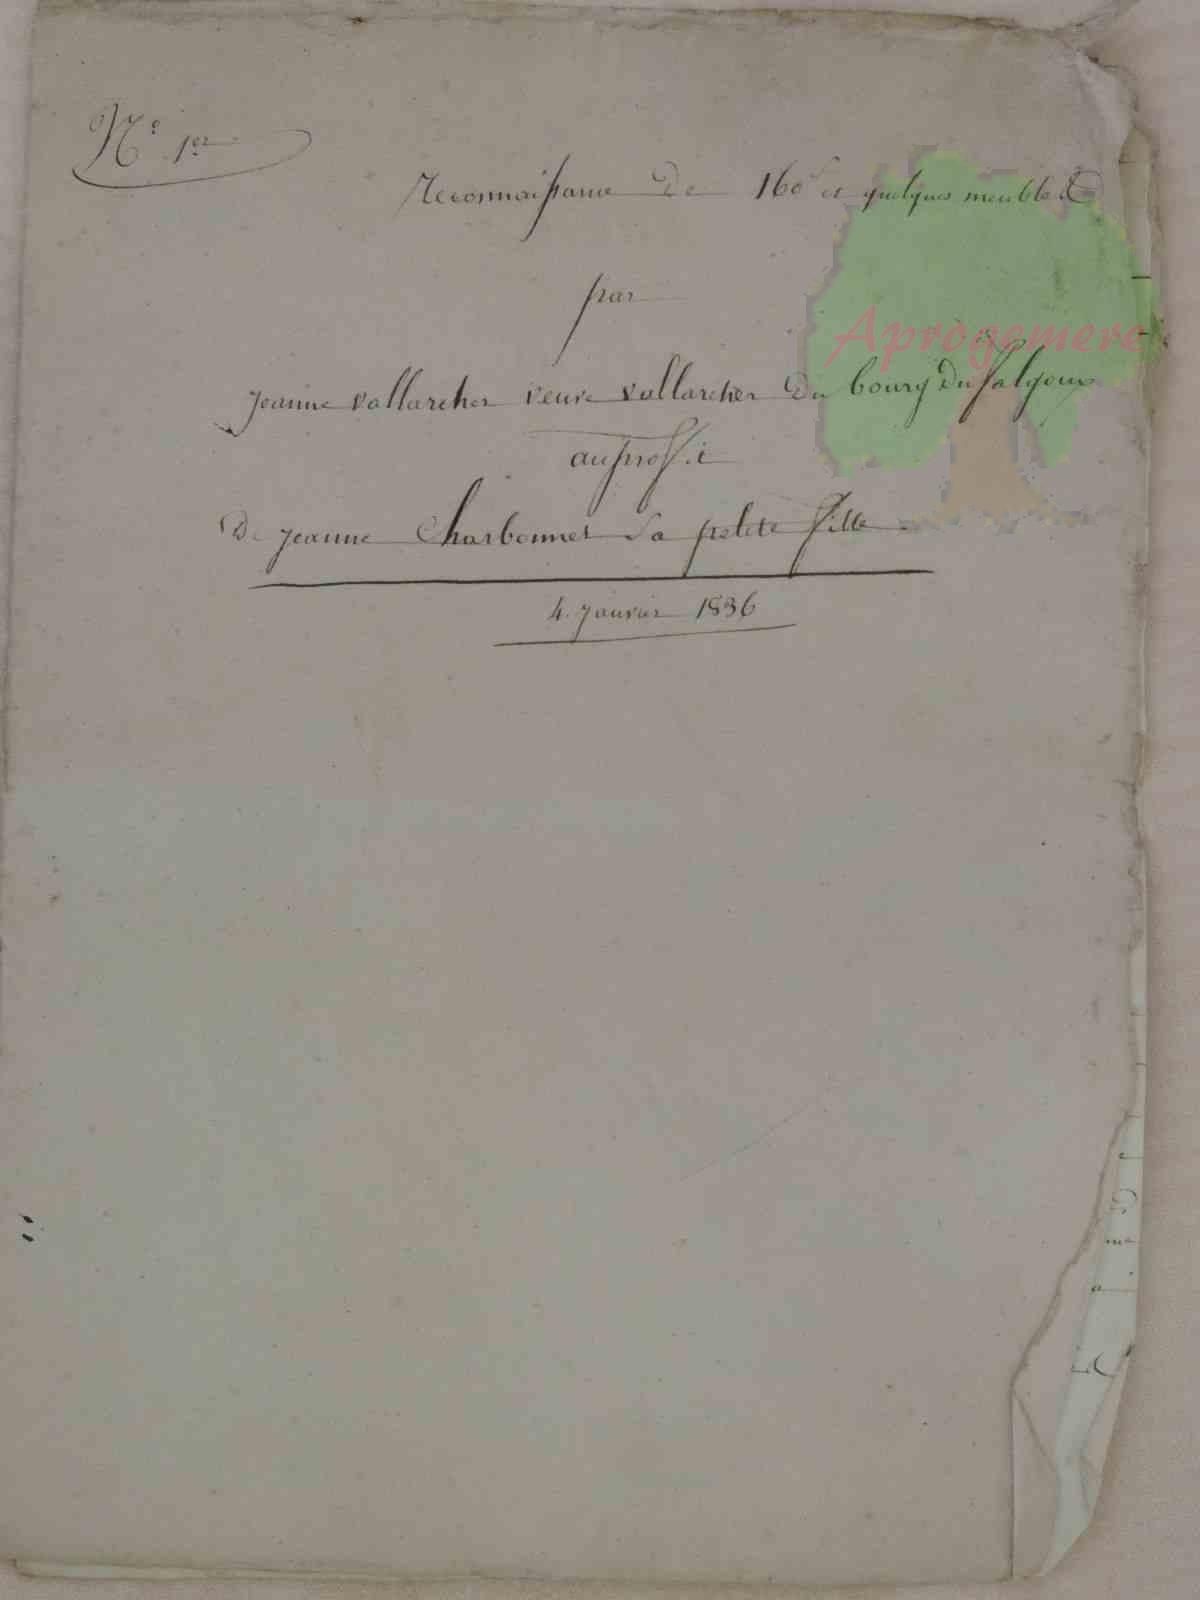 N° 1er
Reconnaissance De 160f et quelques meubles
par
Jeanne vallarcher veuve vallarcher Du bourg Du falgoux
Aprogemere
au proffit
De Jeanne Charbonnel Sa petite fille
4. Janvier 1836